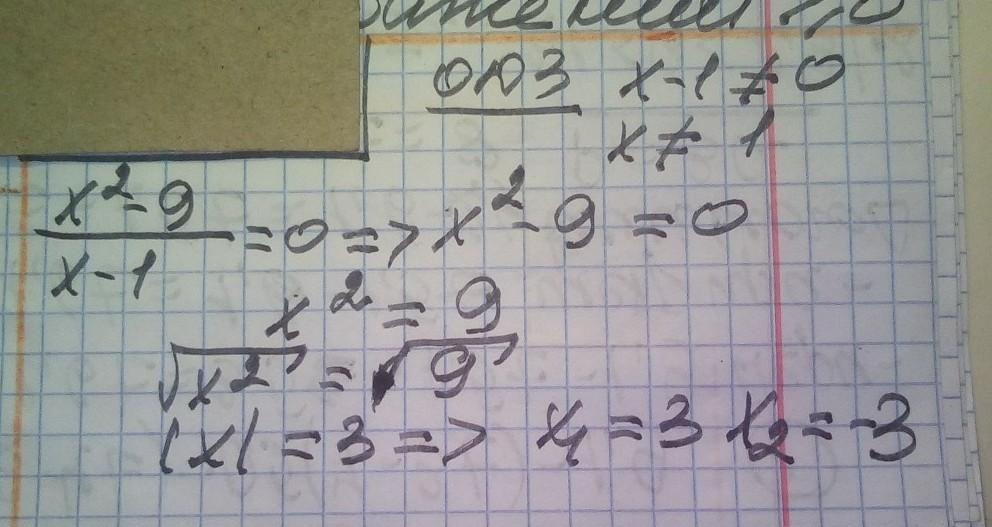 ОДЗ x-1 ≠ 0
x ≠ 1
x²-9 / x-1 = 0 => x²-9 = 0
x² = 9
√x² = √9
|x| = 3 => x₁ = 3 x₂ = -3